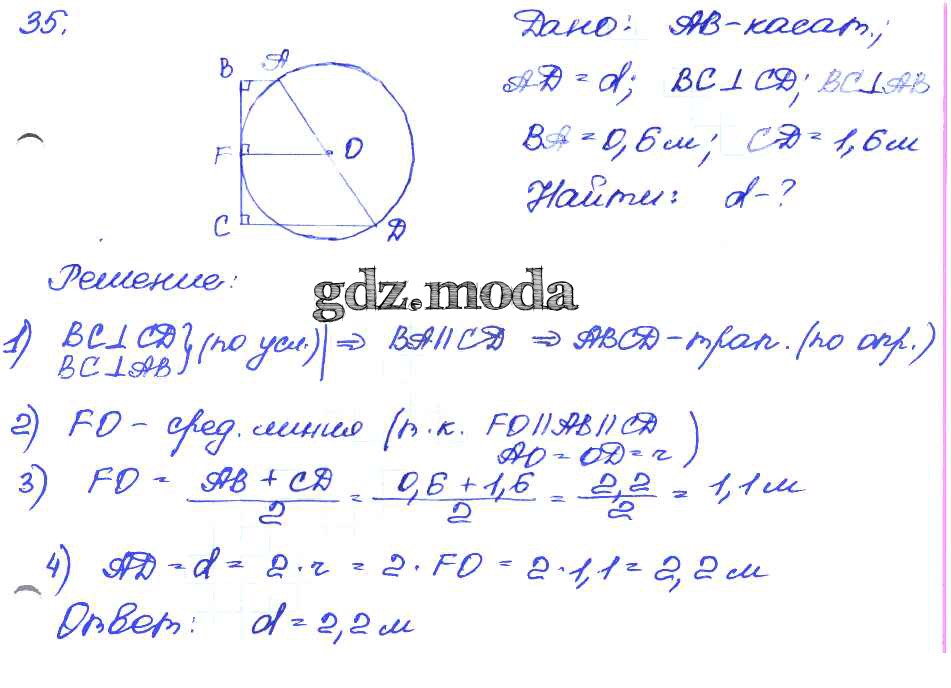 35.
Дано: AB-касат.;
AD = d; BC⊥CD; BC⊥AB
BA = 0,6 м; CD = 1,6 м
Найти: d-?
B A
F O
C D
Решение:
gdz.moda
1) BC⊥CD
BC⊥AB } (по усл.) | ⇒ BA||CD ⇒ ABCD-трап. (по опр.)
2) FO - сред. линия (т.к. FO||AB||CD
AO = OD = r)
3) FO = (AB + CD)/2 = (0,6 + 1,6)/2 = 2,2/2 = 1,1 м
4) AD = d = 2·r = 2·FO = 2·1,1 = 2,2 м
Ответ: d = 2,2 м